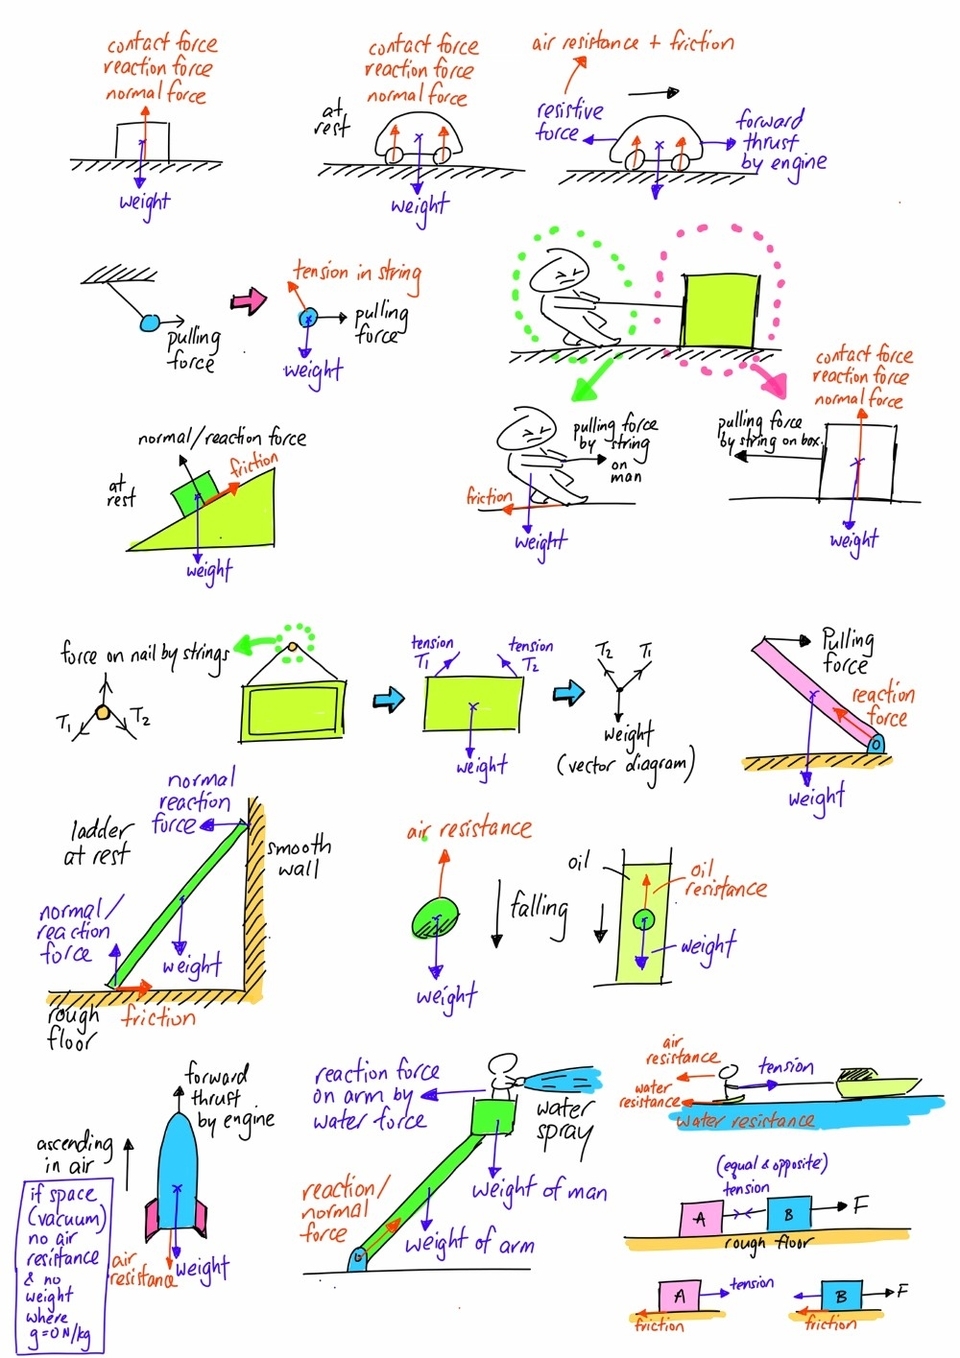 contact force
reaction force
normal force
weight
contact force
reaction force
normal force
at
rest
weight
air resistance + friction
resistive
force
forward
thrust
by engine
pulling
force
tension in string
pulling
force
weight
contact force
reaction force
normal force
pulling force
by string
on
man
friction
weight
pulling force
by string on box.
weight
normal/reaction force
friction
at
rest
weight
force on nail by strings
T1
T2
tension
T1
tension
T2
weight
T2
T1
weight
(vector diagram)
Pulling
force
reaction
force
weight
normal
reaction
force
ladder
at rest
smooth
wall
normal/
reaction
force
weight
rough
floor
friction
air resistance
falling
weight
oil
oil
resistance
weight
forward
thrust
by engine
ascending
in air
if space
(vacuum)
no air
resistance
& no
weight
where
g=0N/kg
air
resistance
weight
reaction force
on arm by
water force
water
spray
reaction/
normal
force
weight of man
weight of arm
air
resistance
tension
water
resistance
water resistance
(equal & opposite)
tension
A
B
F
rough floor
A
tension
friction
B
F
friction